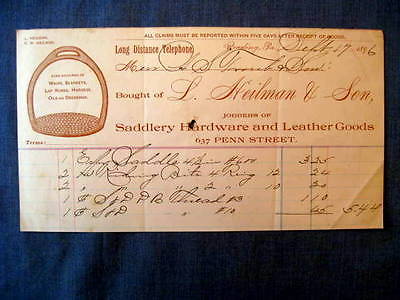 L. HEILMAN.
C. W. HEILMAN.
ALL CLAIMS MUST BE REPORTED WITHIN FIVE DAYS AFTER RECEIPT OF GOODS.
Long Distance Telephone.
Reading, Pa., Sept 17 1896
Bought of L. Heilman & Son,
JOBBERS OF
Saddlery Hardware and Leather Goods
637 PENN STREET.
ALSO JOBBERS OF
WHIPS, BLANKETS,
LAP ROBES, HARNESS,
OILS AND DRESSINGS.
Terms:
1 Saddle 4 #600 3 25
2 Riding Bits 4 Ring 12 24
2 " " " 2 " 10 20
1 Thread #3 1 10
1 #10 65 5 44